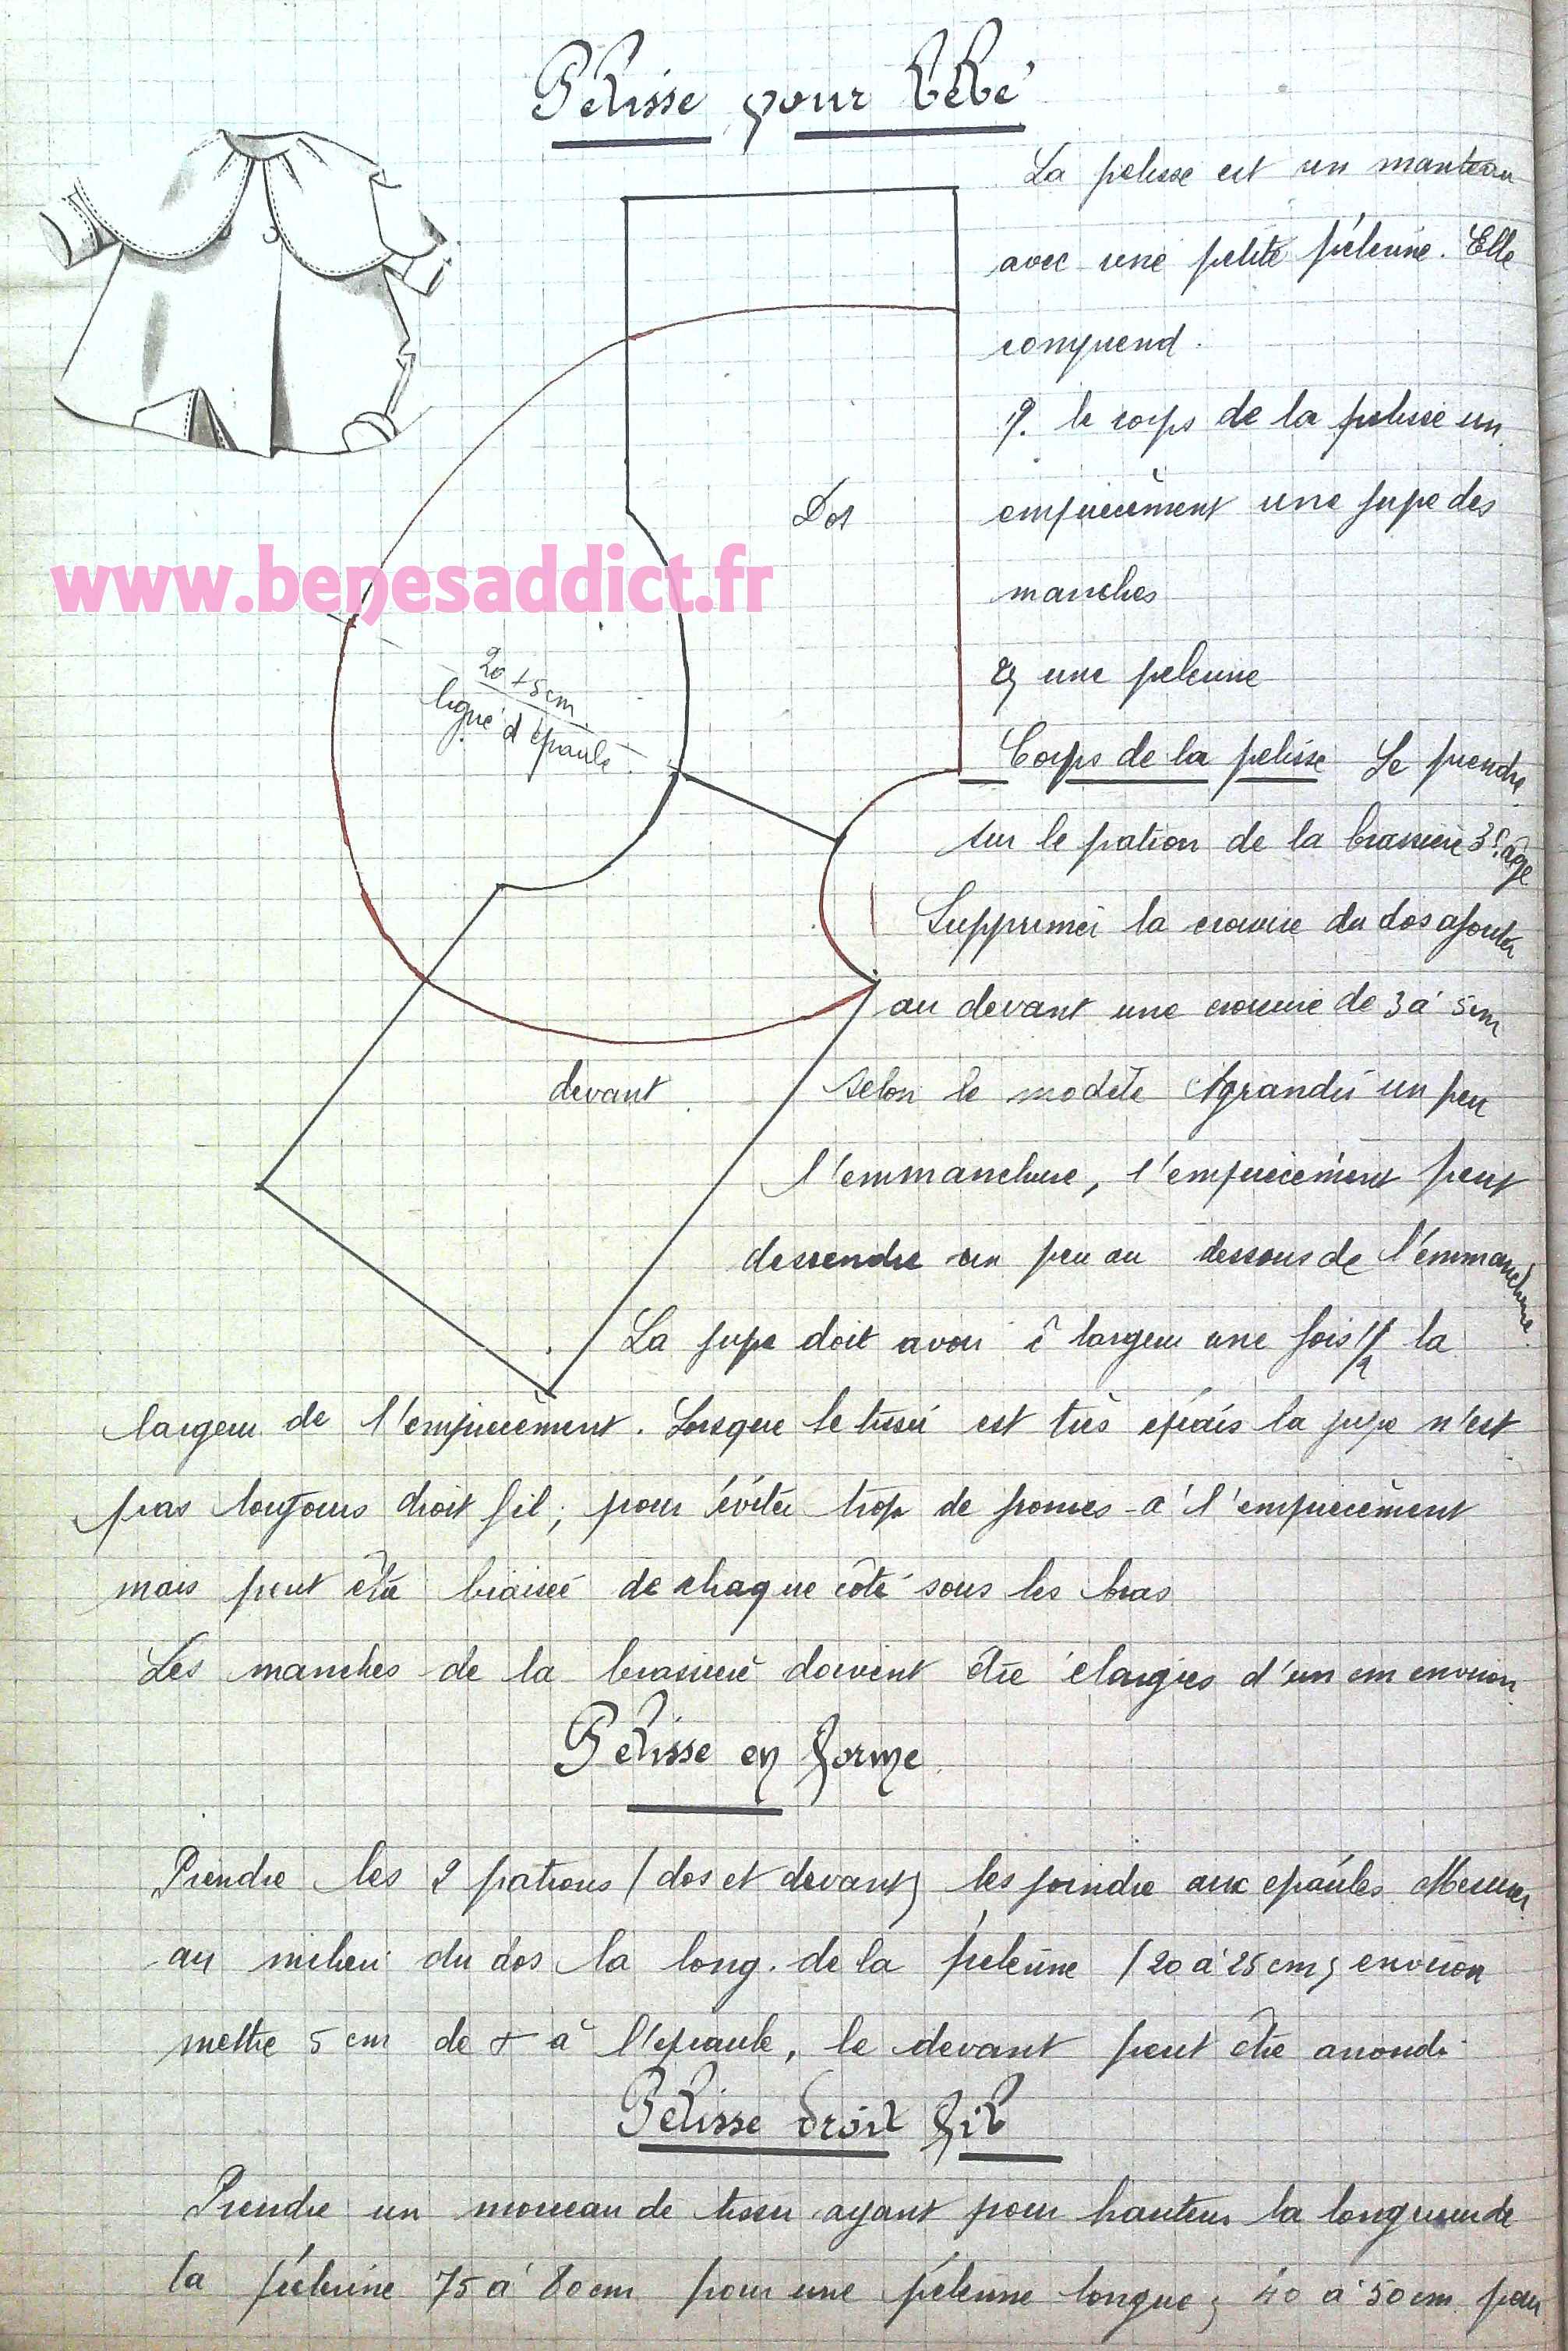 Pelisse pour Bébé
La pelisse est un manteau
avec une petite pélerine. Elle
comprend.
1º. le corps de la pelisse un
empiècement une jupe des
manches
2) une pelerine
Corps de la pelisse Le prendre
sur le patron de la brassière 3e. âge
Supprimer la croisure du dos ajouter
au devant une croisure de 3 à 5 cm
selon le modèle Agrandir un peu
l'emmanchure, l'empiècement peut
descendre un peu au dessous de l'emmanchure.
La jupe doit avoir largeur une fois 1/2 la
largeur de l'empiècement. Lorsque le tissu est très épais la jupe n'est
pas toujours droit fil; pour éviter trop de fronces à l'empiècement
mais peut être biaisée de chaque côté sous les bras
Les manches de la brassière doivent être élargies d'un cm environ.
Pelisse en forme
Prendre les 2 patrons (dos et devant) les joindre aux épaules Mesurer
au milieu du dos la long. de la pélerine (20 à 25 cm) environ
mettre 5 cm de + à l'épaule, le devant peut être arrondi.
Pelisse droit fil
Prendre un morceau de tissu ayant pour hauteur la longueur de
la pélerine 75 à 80 cm pour une pélerine longue; 40 à 50 cm pour
Dos
www.benesaddict.fr
20 + 5 cm.
ligne d'épaule.
devant